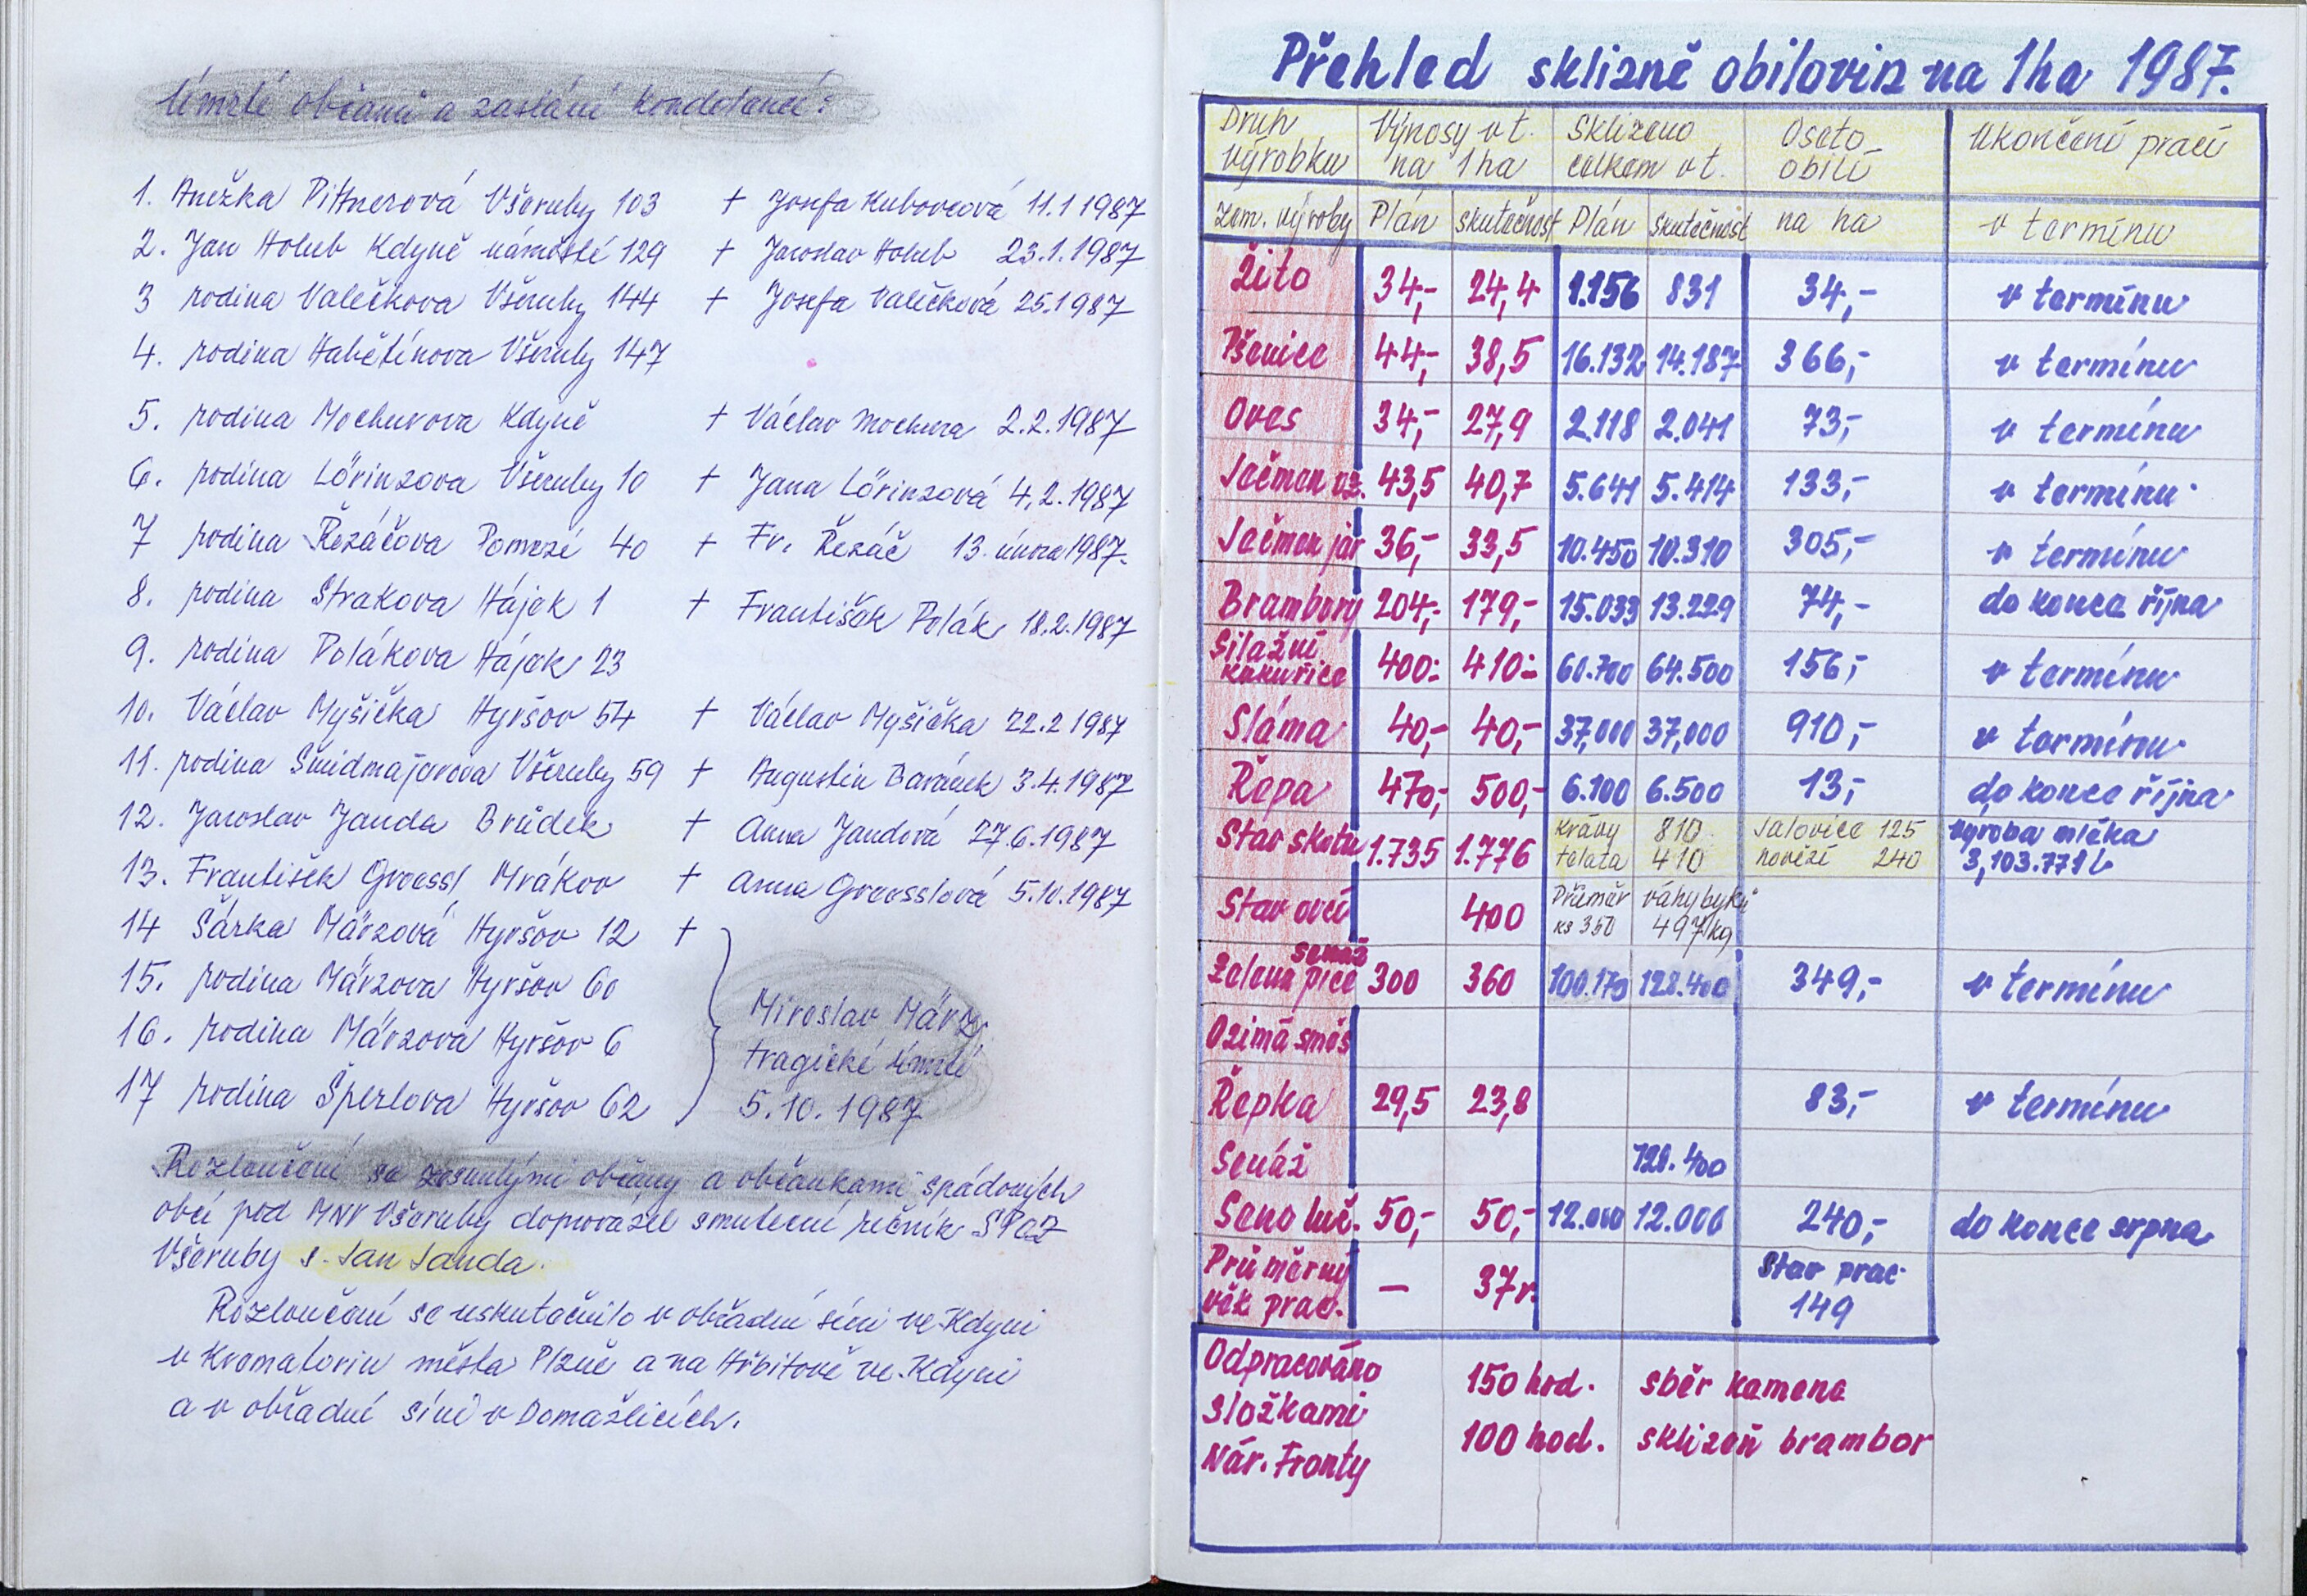 Úmrtí občanů a zaslání kondolencí:
1. Anežka Pittnerová Všeruby 103 + Josefa Kubovcová 11.1 1987
2. Jan Holub Kdyně náměstí 129 + Jaroslav Holub 23.1.1987
3 rodina Valečkova Všeruby 144 + Josefa Valečková 25.1987
4. rodina Habětínova Všeruby 147
5. rodina Mochurova Kdyně + Václav Mochura 2.2.1987
6. rodina Lörinzova Všeruby 10 + Jana Lörinzová 4.2.1987
7 rodina Řezáčova Pomezí 40 + Fr. Řezáč 13. února 1987.
8. rodina Strakova Hájek 1 + František Polák 18.2.1987
9. rodina Polákova Hájek 23
10. Václav Myšička Hyršov 54 + Václav Myšička 22.2 1987
11. rodina Šmídmajerova Všeruby 59 + Augustin Baránek 3.4.1987
12. Jaroslav Janda Brůdek + Anna Jandová 27.6.1987
13. František Groessl Mrákov + Anna Groesslová 5.10.1987
14 Šárka Märzová Hyršov 12 +
15. rodina Märzova Hyršov 60
16. rodina Märzova Hyršov 6
17 rodina Šperlova Hyršov 62
Miroslav März.
tragické úmrtí
5.10.1987
Rozloučení se zesnulými občany a občankami spádových
obcí pod MNV Všeruby doprovázel smuteční řečník SPOZ
Všeruby s. Jan Janda.
Rozloučení se uskutečnilo v obřadní síni ve Kdyni
v Krematoriu města Plzně a na Hřbitově ve Kdyni
a v obřadní síni v Domažlicích.
Přehled sklizně obilovin na 1ha 1987.
Druh Výnosy v t. Sklizeno Oseto Ukončení prací
výrobku na 1ha celkem v t. obilí
zem. výroby Plán skutečnost Plán skutečnost na ha v termínu
Žito 34,- 24,4 1.156 831 34,- v termínu
Pšenice 44,- 38,5 16.132 14.187 366,- v termínu
Oves 34,- 27,9 2.118 2.041 73,- v termínu
Ječmen oz. 43,5 40,7 5.641 5.414 133,- v termínu
Ječmen jar 36,- 33,5 10.450 10.310 305,- v termínu
Brambory 204,- 179,- 15.033 13.229 74,- do konce října
Silažní
kukuřice 400:- 410:- 60.700 64.500 156,- v termínu
Sláma 40,- 40,- 37,000 37,000 910,- v termínu
Řepa 470,- 500,- 6.100 6.500 13,- do konce října
Stav skotu 1.735 1.776 krávy 810 Jalovice 125 výroba mléka
telata 410 hovězí 240 3,103.771 l
Stav ovcí 400 Průměr váhy býků
ks 350 497 kg
senáž
Zelená píce 300 360 100.170 128.400 349,- v termínu
Ozimá směs
Řepka 29,5 23,8 83,- v termínu
Senáž 128.400
Seno luč. 50,- 50,- 12.000 12.000 240,- do konce srpna
Průměrný Stav prac.
věk prac. — 37 r. 149
Odpracováno 150 hod. sběr kamene
složkami
100 hod. sklizeň brambor
Nár. Fronty